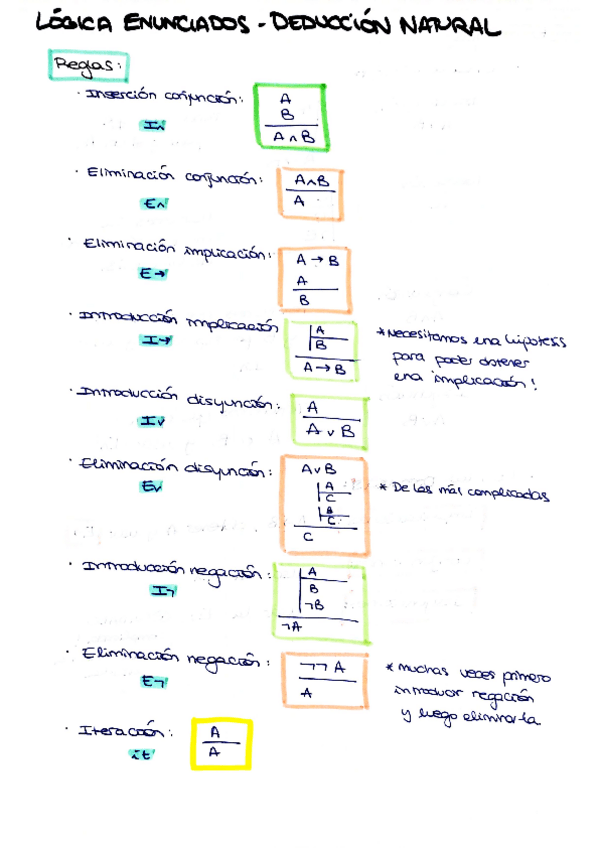 LÓGICA ENUNCIADOS - DEDUCCIÓN NATURAL
Reglas:
· Inserción conjunción:
I∧
A
B
A ∧ B
· Eliminación conjunción:
E∧
A∧B
A
· Eliminación implicación:
E→
A → B
A
B
· Introducción implicación
I→
A
B
A → B
* Necesitamos una hipotesis
para poder obtener
una implicación!
· Introducción disyunción:
I∨
A
A ∨ B
· Eliminación disyunción:
E∨
A∨B
A
C
B
C
C
* De las más complicadas
· Introducción negación:
I¬
A
B
¬B
¬A
· Eliminación negación:
E¬
¬¬A
A
* muchas veces primero
introducir negación
y luego eliminarla.
· Iteración:
it
A
A